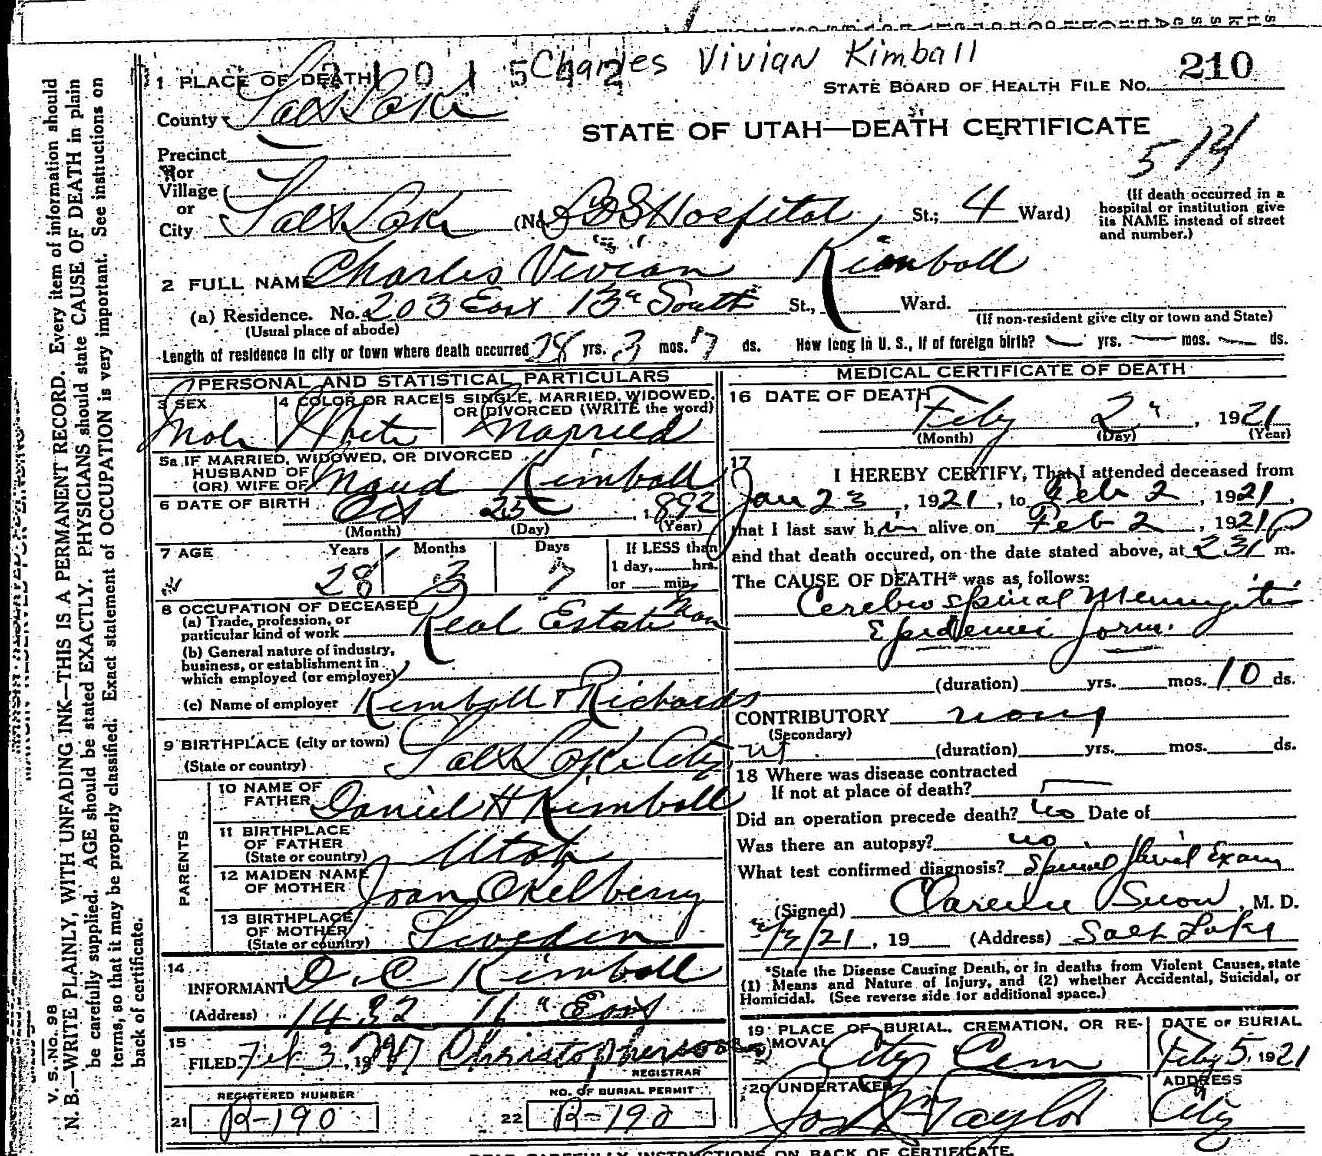 Charles Vivian Kimball
2101542
210
STATE BOARD OF HEALTH FILE No.
STATE OF UTAH—DEATH CERTIFICATE
514
1 PLACE OF DEATH
County Salt Lake
Precinct
or
Village
or
City Salt Lake (No. LDS Hospital St.; 4 Ward)
(If death occurred in a
hospital or institution give
its NAME instead of street
and number.)
2 FULL NAME Charles Vivian Kimball
(a) Residence. No. 203 East 13" South St., Ward.
(Usual place of abode)
(If non-resident give city or town and State)
Length of residence in city or town where death occurred 28 yrs. 3 mos. 7 ds. How long in U. S., if of foreign birth? — yrs. — mos. — ds.
PERSONAL AND STATISTICAL PARTICULARS
3 SEX
Male
4 COLOR OR RACE
White
5 SINGLE, MARRIED, WIDOWED,
OR DIVORCED (WRITE the word)
Married
5a IF MARRIED, WIDOWED, OR DIVORCED
HUSBAND OF
(OR) WIFE OF Maud Kimball
6 DATE OF BIRTH Oct 25 1892
(Month) (Day) (Year)
7 AGE
Years Months Days
28 3 7
If LESS than
1 day, hrs.
or min.
8 OCCUPATION OF DECEASED
(a) Trade, profession, or
particular kind of work Real Estate Man
(b) General nature of industry,
business, or establishment in
which employed (or employer)
(c) Name of employer Kimball & Richards
9 BIRTHPLACE (city or town)
(State or country) Salt Lake City Ut
PARENTS
10 NAME OF
FATHER Daniel H Kimball
11 BIRTHPLACE
OF FATHER
(State or country) Utah
12 MAIDEN NAME
OF MOTHER Joan Okelberry
13 BIRTHPLACE
OF MOTHER
(State or country) Sweden
14
INFORMANT D. C Kimball
(Address) 1432 11" East
15
FILED Feb 3, 19 Christopherson
REGISTRAR
REGISTERED NUMBER
21 R-190
NO. OF BURIAL PERMIT
22 R-190
MEDICAL CERTIFICATE OF DEATH
16 DATE OF DEATH
Feby 2", 1921
(Month) (Day) (Year)
17
I HEREBY CERTIFY, That I attended deceased from
Jan 23, 1921, to Feb 2, 1921,
that I last saw him alive on Feb 2, 1921
and that death occured, on the date stated above, at 231 P m.
The CAUSE OF DEATH* was as follows:
Cerebro spinal Meningitis
Epidemic form.
(duration) yrs. mos. 10 ds.
CONTRIBUTORY none
(Secondary)
(duration) yrs. mos. ds.
18 Where was disease contracted
If not at place of death?
Did an operation precede death? no Date of
Was there an autopsy? no
What test confirmed diagnosis? Spinal fluid Exam
(Signed) Clarence Snow, M. D.
2/3/21, 19 (Address) Salt Lake
*State the Disease Causing Death, or in deaths from Violent Causes, state
(1) Means and Nature of Injury, and (2) whether Accidental, Suicidal, or
Homicidal. (See reverse side for additional space.)
19 PLACE OF BURIAL, CREMATION, OR RE-
MOVAL City Cem
DATE OF BURIAL
Feby 5, 1921
20 UNDERTAKER
Jos Taylor
ADDRESS
City
V. S. No. 98
N. B.—WRITE PLAINLY, WITH UNFADING INK—THIS IS A PERMANENT RECORD. Every item of information should
be carefully supplied. AGE should be stated EXACTLY. PHYSICIANS should state CAUSE OF DEATH in plain
terms, so that it may be properly classified. Exact statement of OCCUPATION is very important. See instructions on
back of certificate.
READ CAREFULLY INSTRUCTIONS ON BACK OF CERTIFICATE.